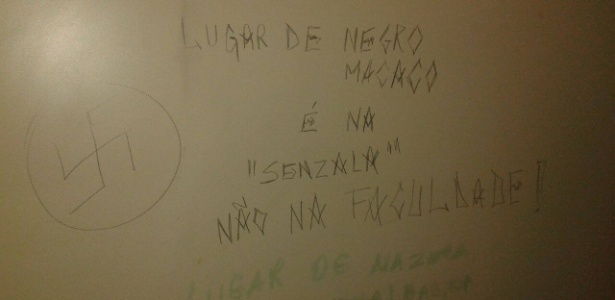 LUGAR DE NEGRO
MACACO
É NA
"SENZALA"
NÃO NA FACULDADE!
LUGAR DE